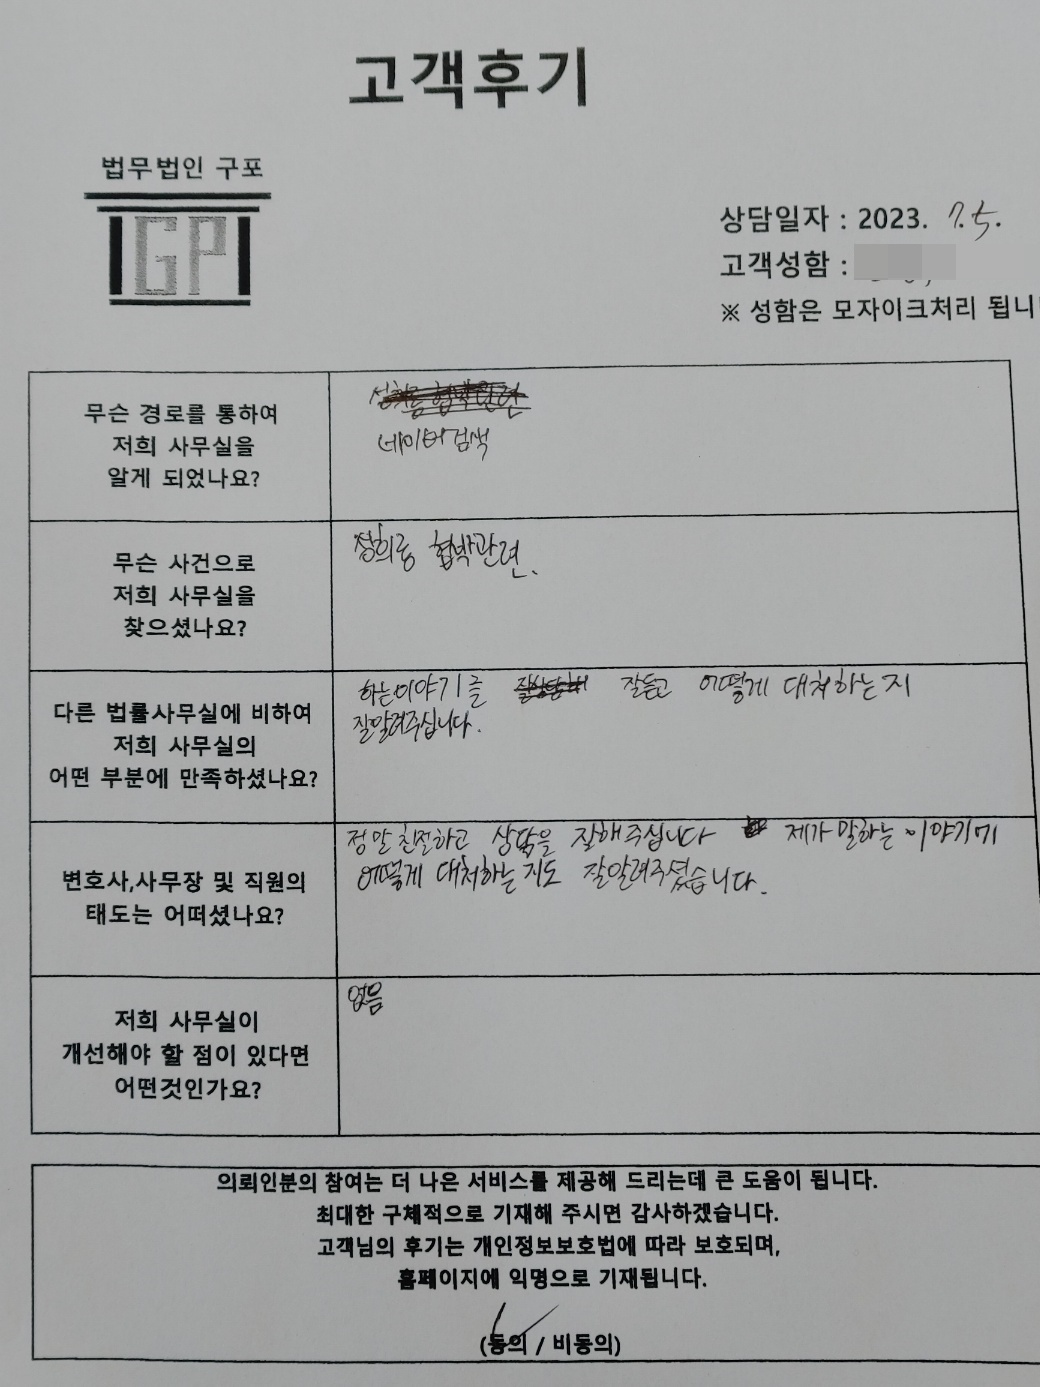 고객후기
법무법인 구포
GP
상담일자 : 2023. 7.5.
고객성함 :
※ 성함은 모자이크처리 됩니
무슨 경로를 통하여
저희 사무실을
알게 되었나요?
네이버검색
무슨 사건으로
저희 사무실을
찾으셨나요?
성희롱 협박관련.
다른 법률사무실에 비하여
저희 사무실의
어떤 부분에 만족하셨나요?
하는이야기를 잘듣고 어떻게 대처하는지
잘알려주십니다.
변호사,사무장 및 직원의
태도는 어떠셨나요?
정말친절하고 상담을 잘해주십니다 제가 말하는 이야기에
어떻게 대처하는지도 잘알려주셨습니다.
저희 사무실이
개선해야 할 점이 있다면
어떤것인가요?
없음
의뢰인분의 참여는 더 나은 서비스를 제공해 드리는데 큰 도움이 됩니다.
최대한 구체적으로 기재해 주시면 감사하겠습니다.
고객님의 후기는 개인정보보호법에 따라 보호되며,
홈페이지에 익명으로 기재됩니다.
(동의 / 비동의)